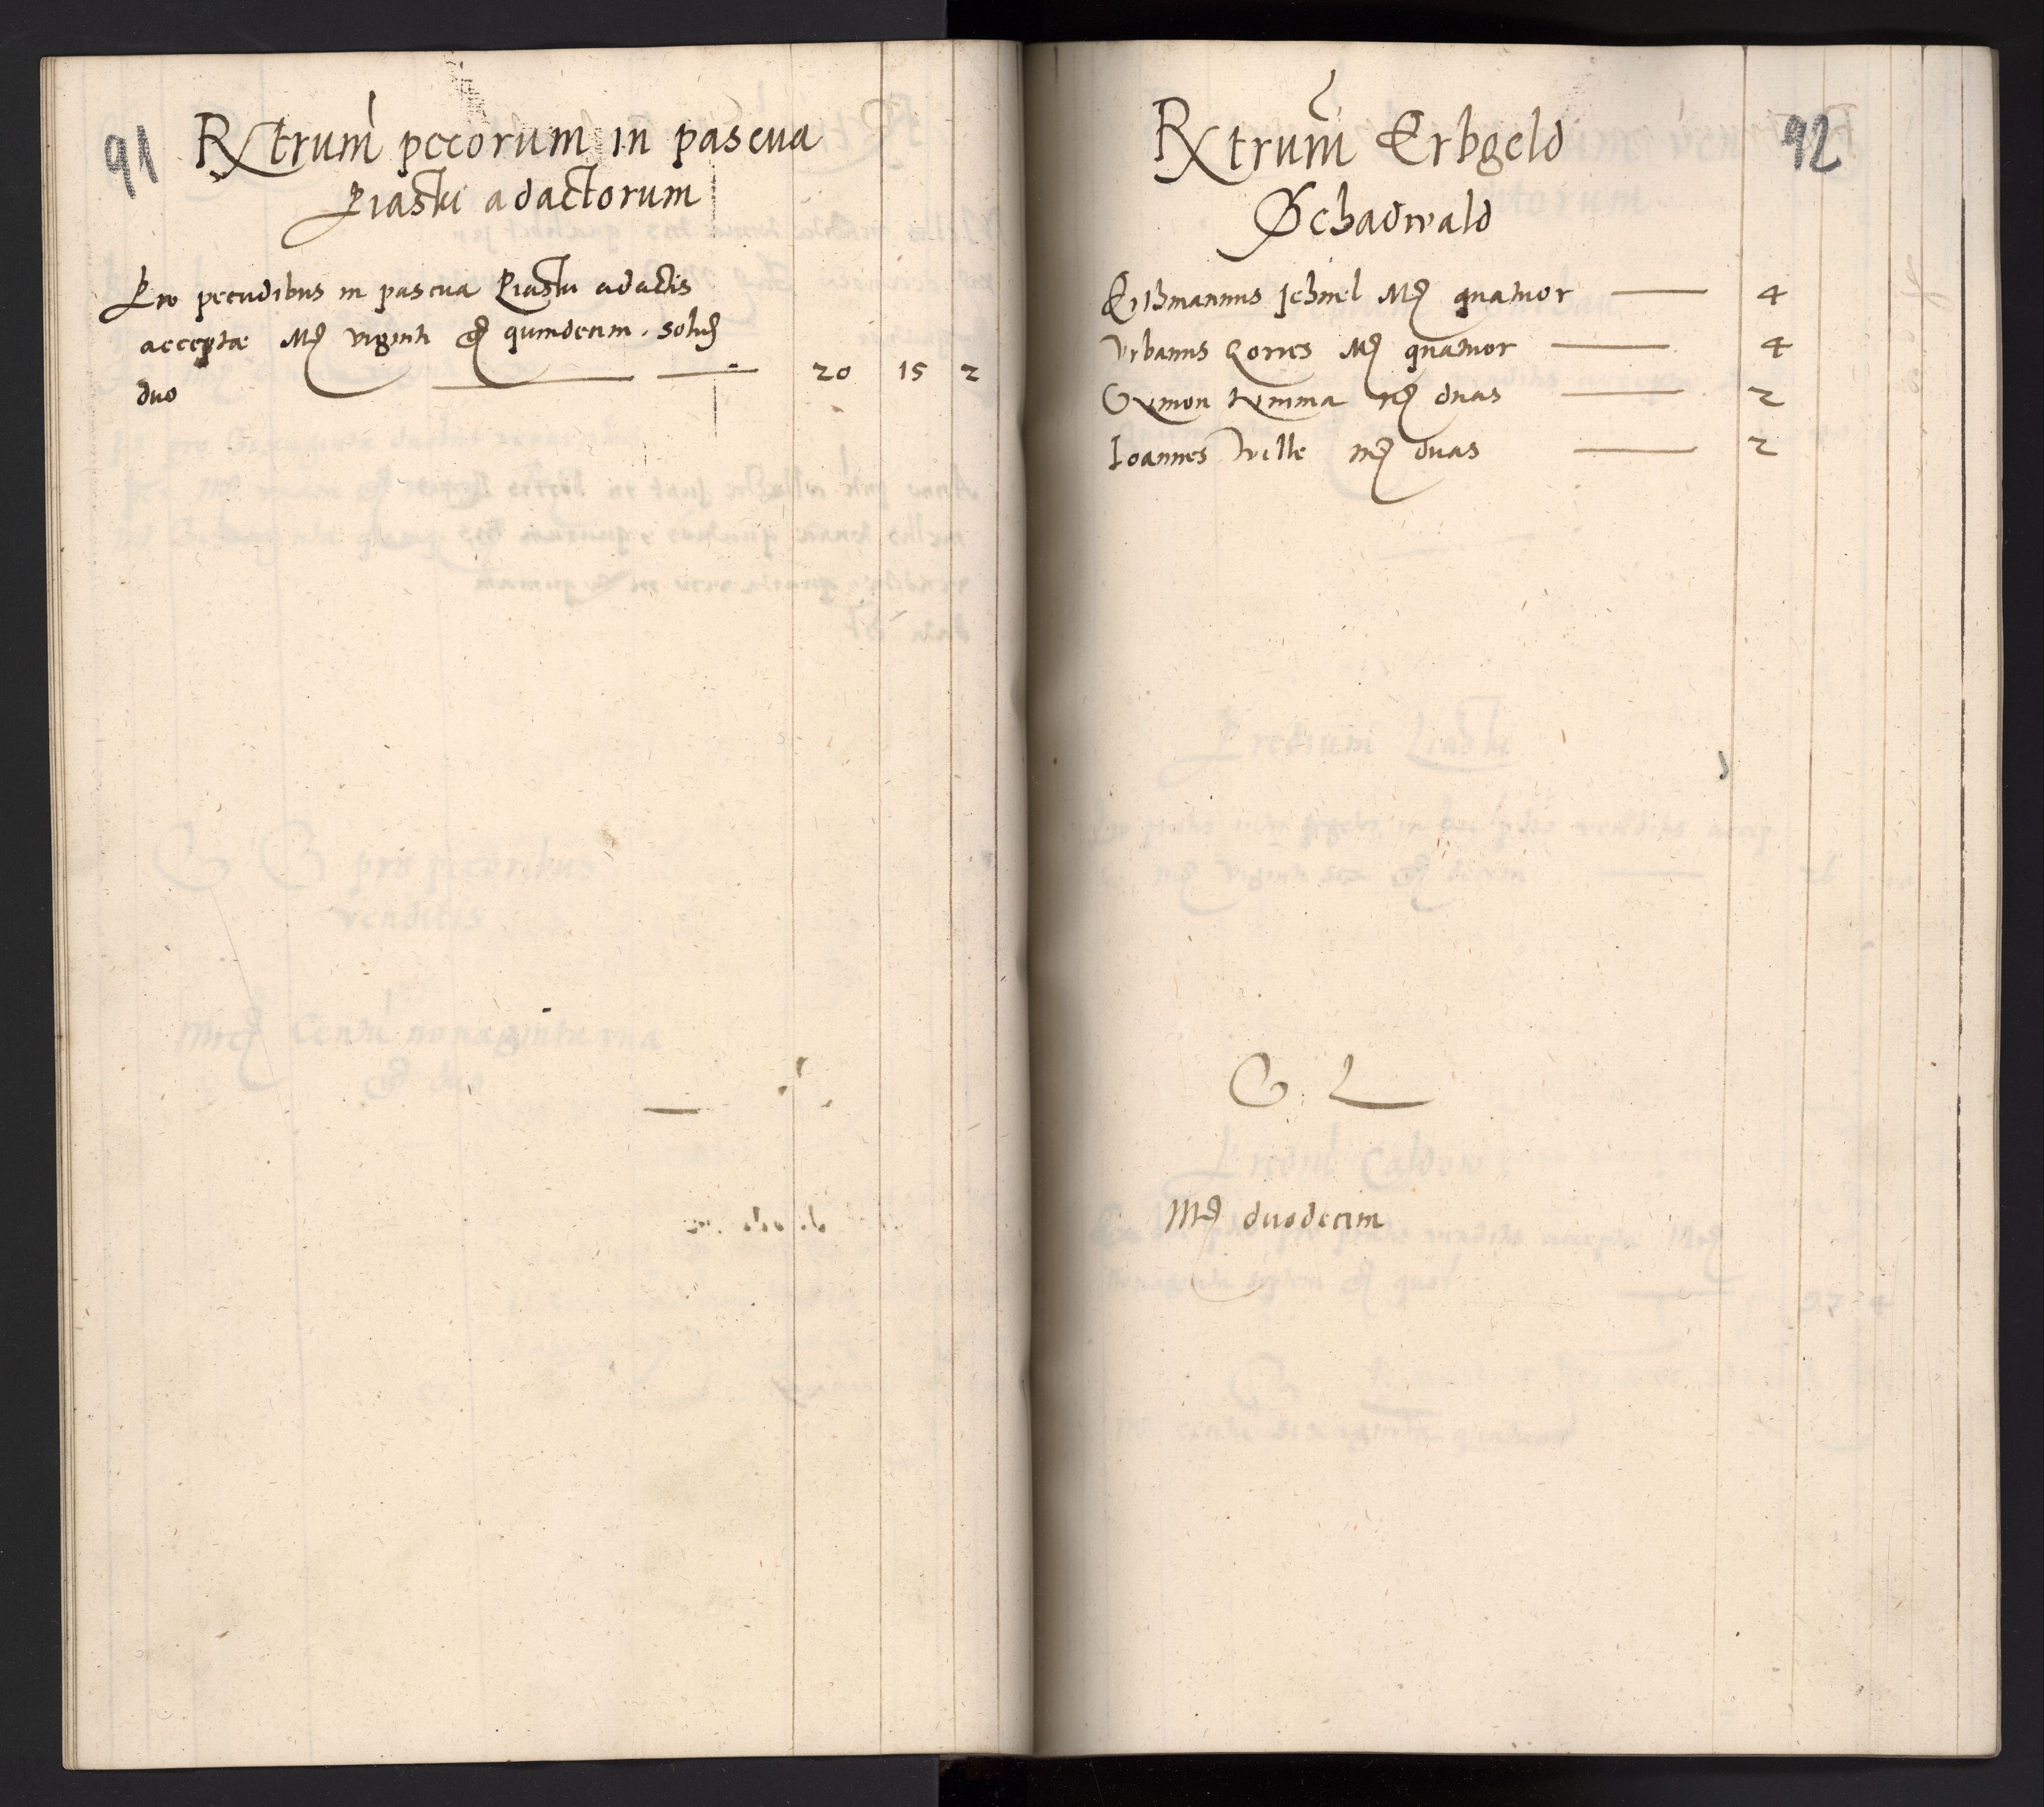 91
Rxtrum pecorum in pascua
Piaski adactorum
Pro pecudibus in pascua Piaski adactis
acceptae Mr viginti gr quindecim. solid
duo 20 15 2
92
Rxtrum Erbgeld
Schadwald
Erthmannus Jehnel Mr quatuor 4
Urbanus Zorres Mr quatuor 4
Symon mr duas 2
Ioannes Wille mr duas 2
S. L
Mr duodecim